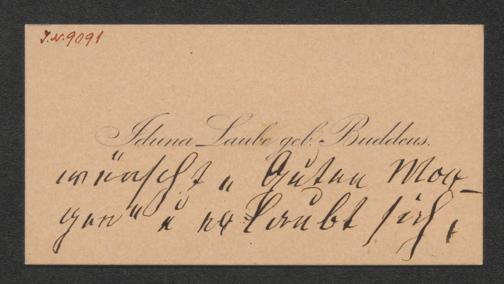 J.N. 9091
Iduna Laube geb. Buddeus.
wünscht „Guten Mor-
gen“ u erlaubt sich,